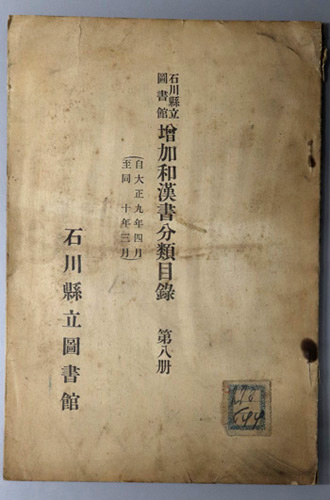 石川縣立
圖書館
增加和漢書分類目錄 第八册
自大正九年四月
至同 十年三月
石川縣立圖書館